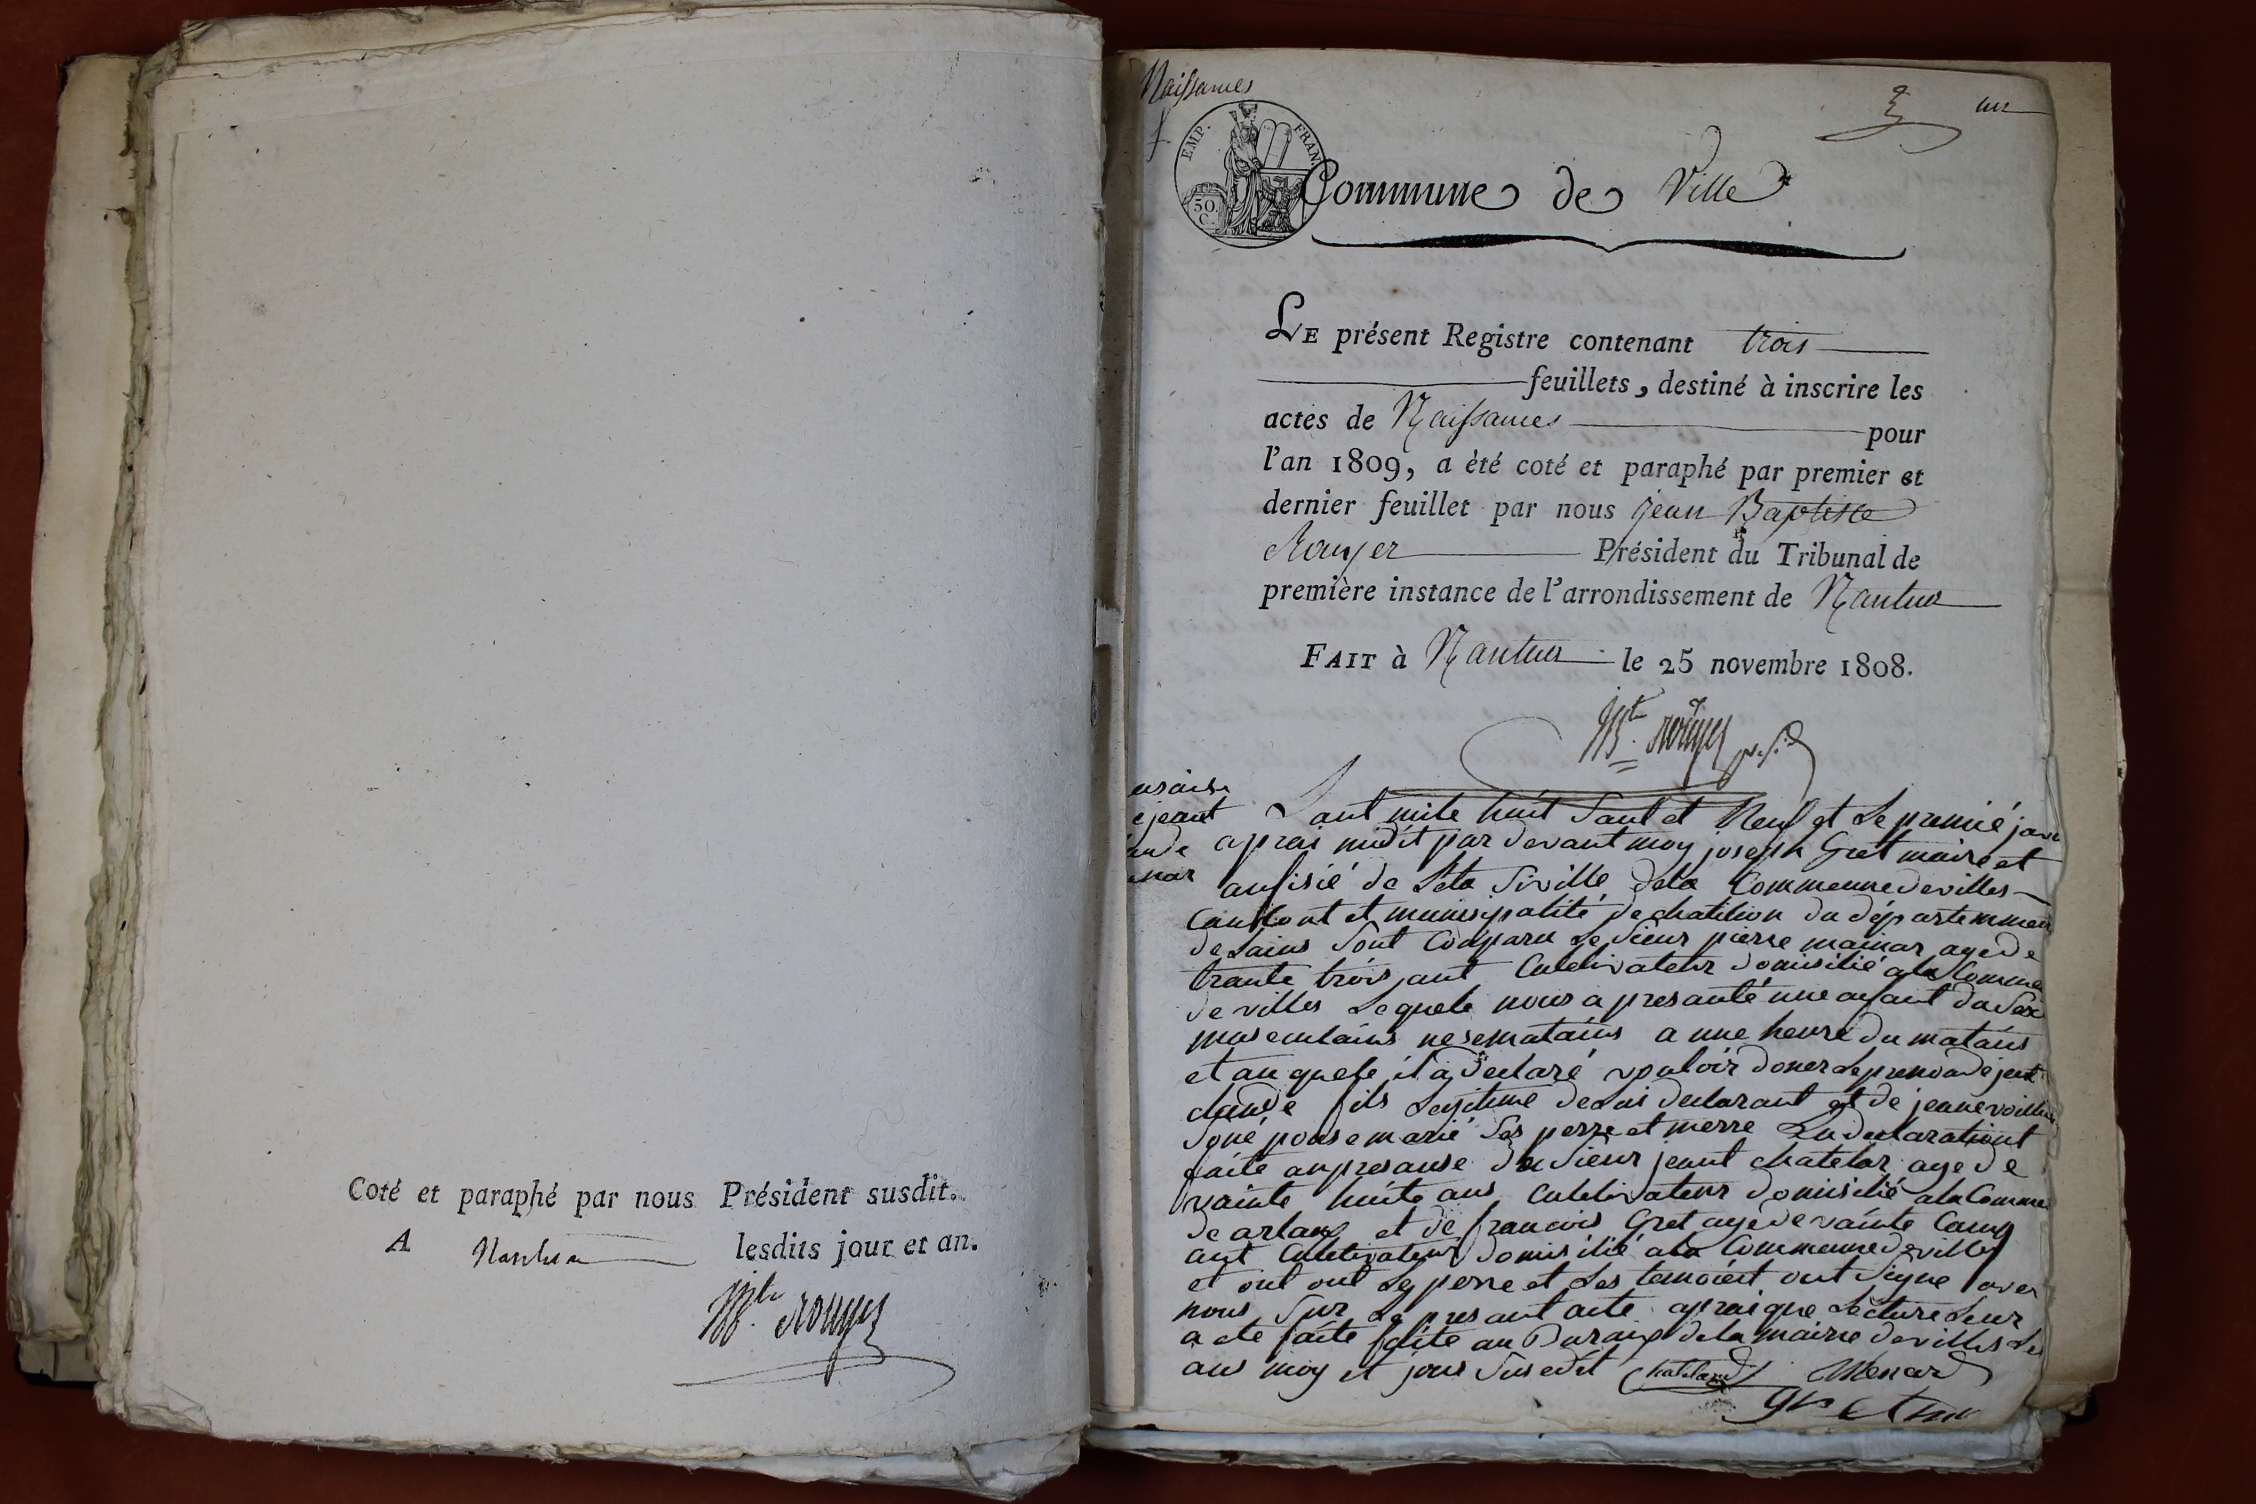 Coté et paraphé par nous Président susdit.
A Nantua lesdits jour et an.
Bte Rouyer
Naissances
un
EMP. FRAN.
50.
C.
Commune de Ville
LE présent Registre contenant trois
feuillets, destiné à inscrire les
actes de Naissances pour
l'an 1809, a èté coté et paraphé par premier et
dernier feuillet par nous jean Baptiste
Rouyer Président du Tribunal de
première instance de l'arrondissement de Nantua
FAIT à Nantua le 25 novembre 1808.
Bte Rouyer
jeant
Lant mile huit Sant et Neuf et Le premié janv
aprai midit par devant moy joseph Gret maire et
aufisié de L'éta Siville dela Commeune de villes
Cantont et munisipalité de chatilion du département
de Lains Sont Conparu Le Sieur pierre mainar age de
trante trois ant Culetivateur domisilié ala Comme
de villes Lequele nous a presanté une anfant du Sex
masculains ne sematains a une heure du matains
et auquele il a declaré vouloir doner Le prenon de jeant
claude fils Legitime de Lui declarant et de jeane
Son épouse marié Ses perre et merre La declarationt
faite anpresanse du Sieur jeant chatelar age de
vainte huite ans Culetivateur domisilié ala Comme
de arlans et de francois Gret age de vainte Cainq
ant Culetivateur domisilié ala Commeune de villes
et ont Le perre et Les temoient ont Signe avec
nous Sur Le presant acte aprai que Lecture Leur
a ete faite faite au Buraix dela mairie de villes Les
ans moy et jour Susedit Chatelard Menard
Gret